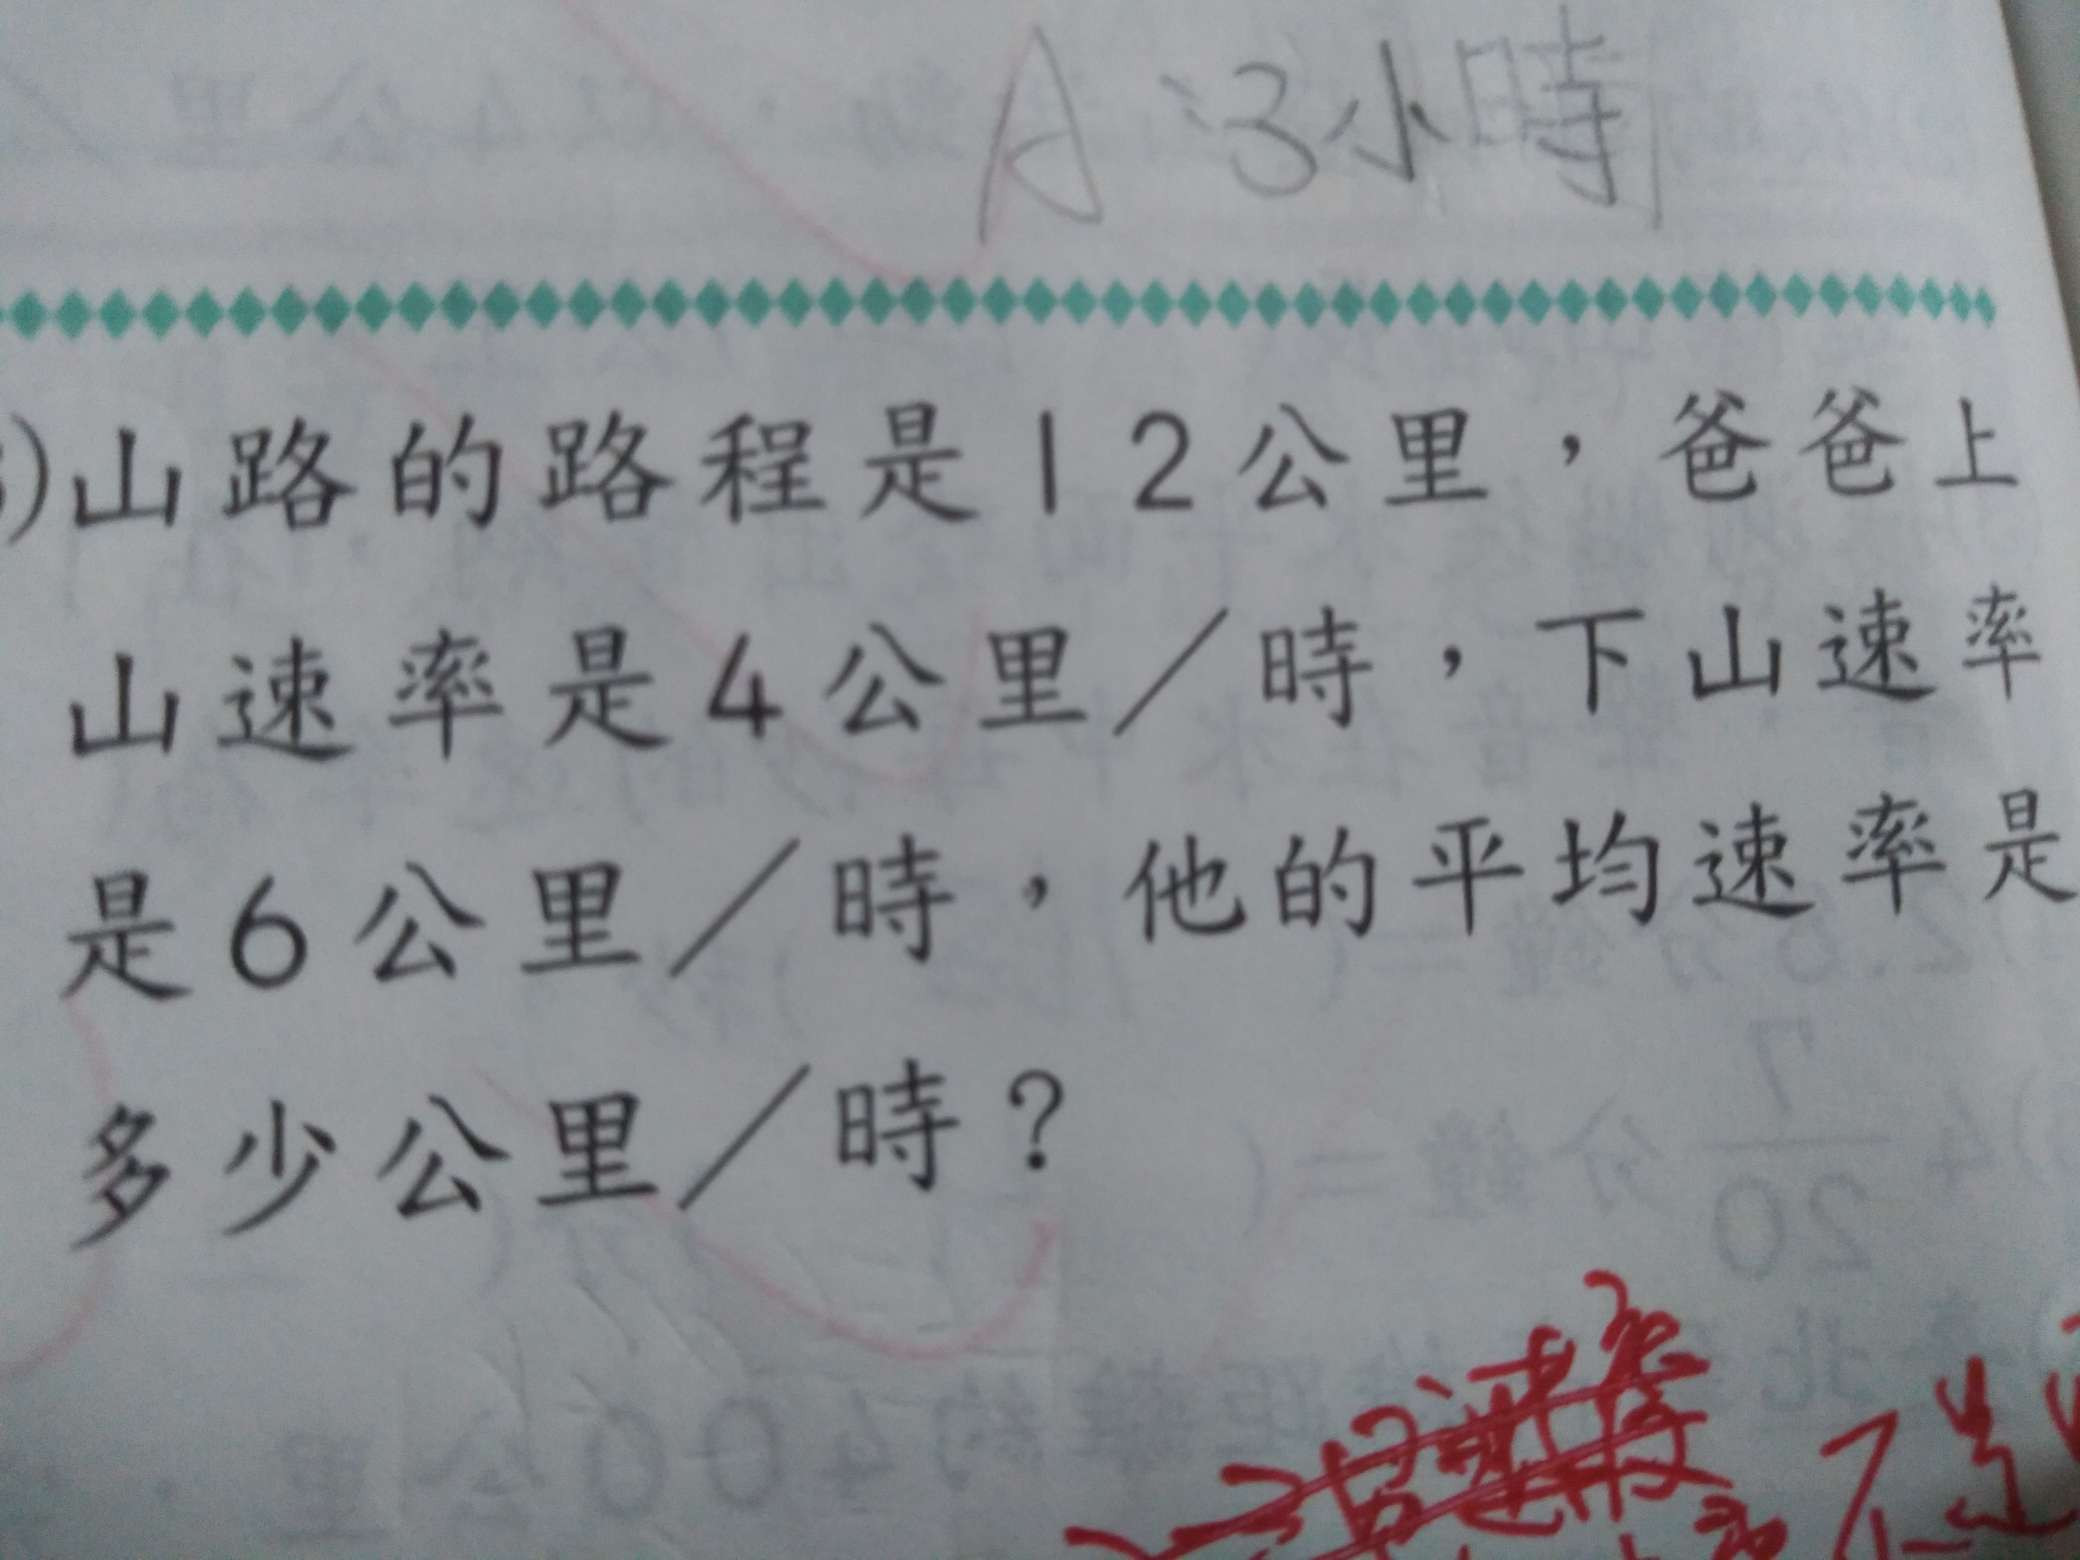 A:3小時
)山路的路程是12公里，爸爸上
山速率是4公里／時，下山速率
是6公里／時，他的平均速率是
多少公里／時？